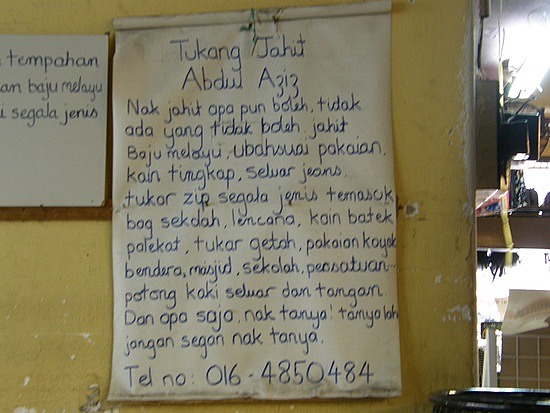 tempahan
an baju melayu
i segala jenis
Tukang Jahit
Abdul Aziz
Nak jahit apa pun boleh, tidak
ada yang tidak boleh jahit
Baju melayu, ubahsuai pakaian,
kain tingkap, seluar jeans.
tukar zip segala jenis temasok
bag sekolah, lencana, kain batek
palekat, tukar getah, pakaian koyak
bendera, masjid, sekolah, persatuan..
potong kaki seluar dan tangan.
Dan apa saja, nak tanya! tanya lah
jangan segan nak tanya.
Tel no: 016-4850484